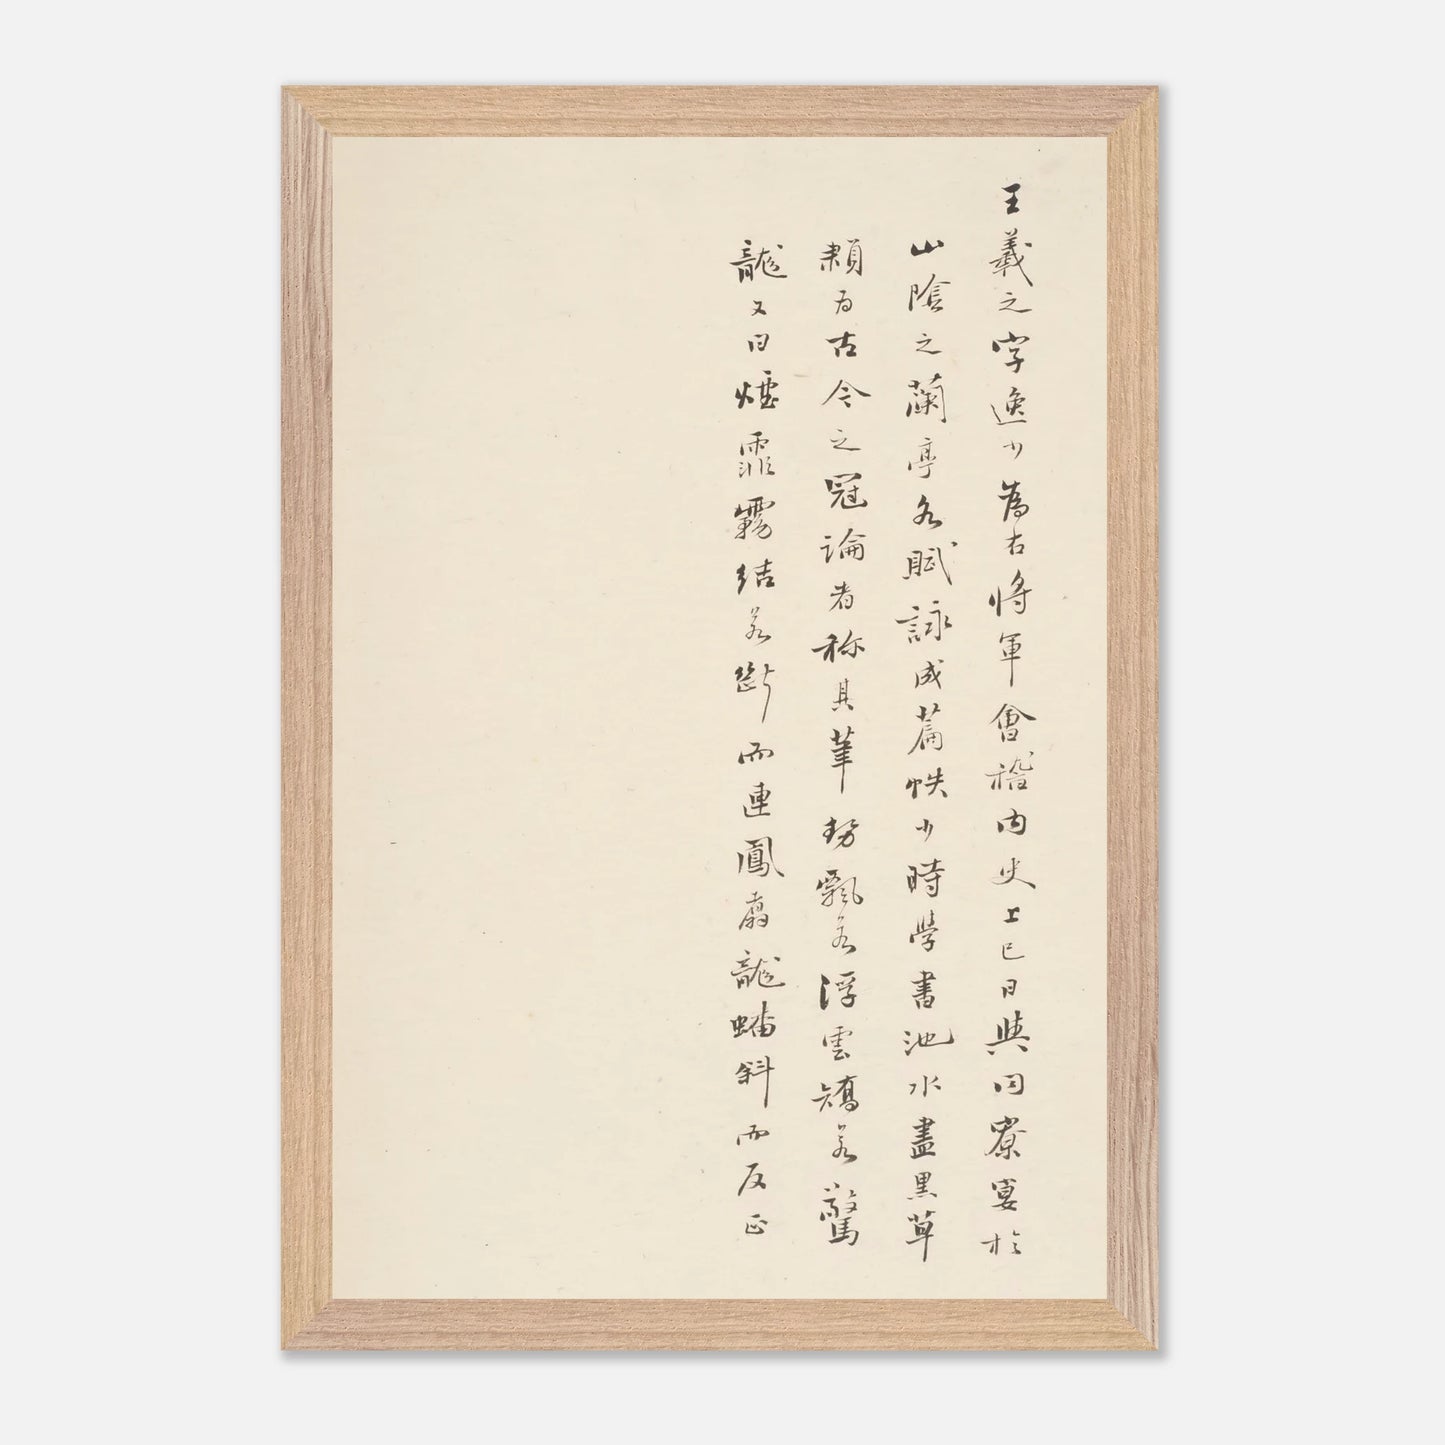 王羲之字逸少為右將軍會稽内史上巳日與同寮宴於
山陰之蘭亭各賦詠成篇帙少時學書池水盡黑草
隸为古今之冠論者称其筆勢飄若浮雲矯若驚
龍又曰煙霏霧結若斷而連鳳翥龍蟠斜而反正